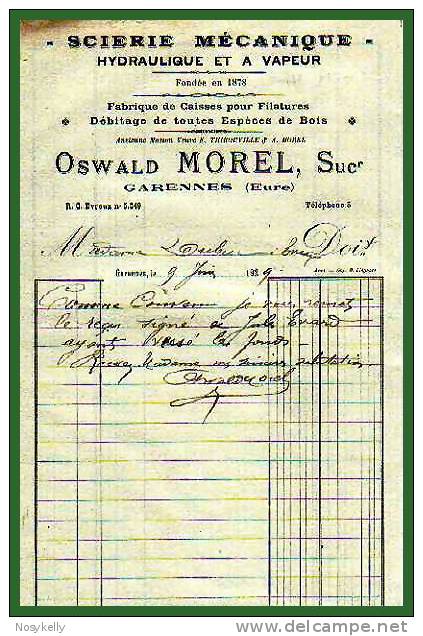 - SCIERIE MÉCANIQUE -
HYDRAULIQUE ET A VAPEUR
Fondée en 1878
Fabrique de Caisses pour Filatures
Débitage de toutes Espèces de Bois
Ancienne Maison Veuve E. THIROUVILLE & A. MOREL
OSWALD MOREL, Sucr
GARENNES (Eure)
R. C. Evreux nº 5.549 Téléphone 5
Madame Doit
Garennes, le 9 Juin 1929
Comme convenu je vous remets
le reçu signé de Jules Evard
ayant versé les fonds.
Recevez Madame mes sincères salutations
Nosykelly
delcampe.net